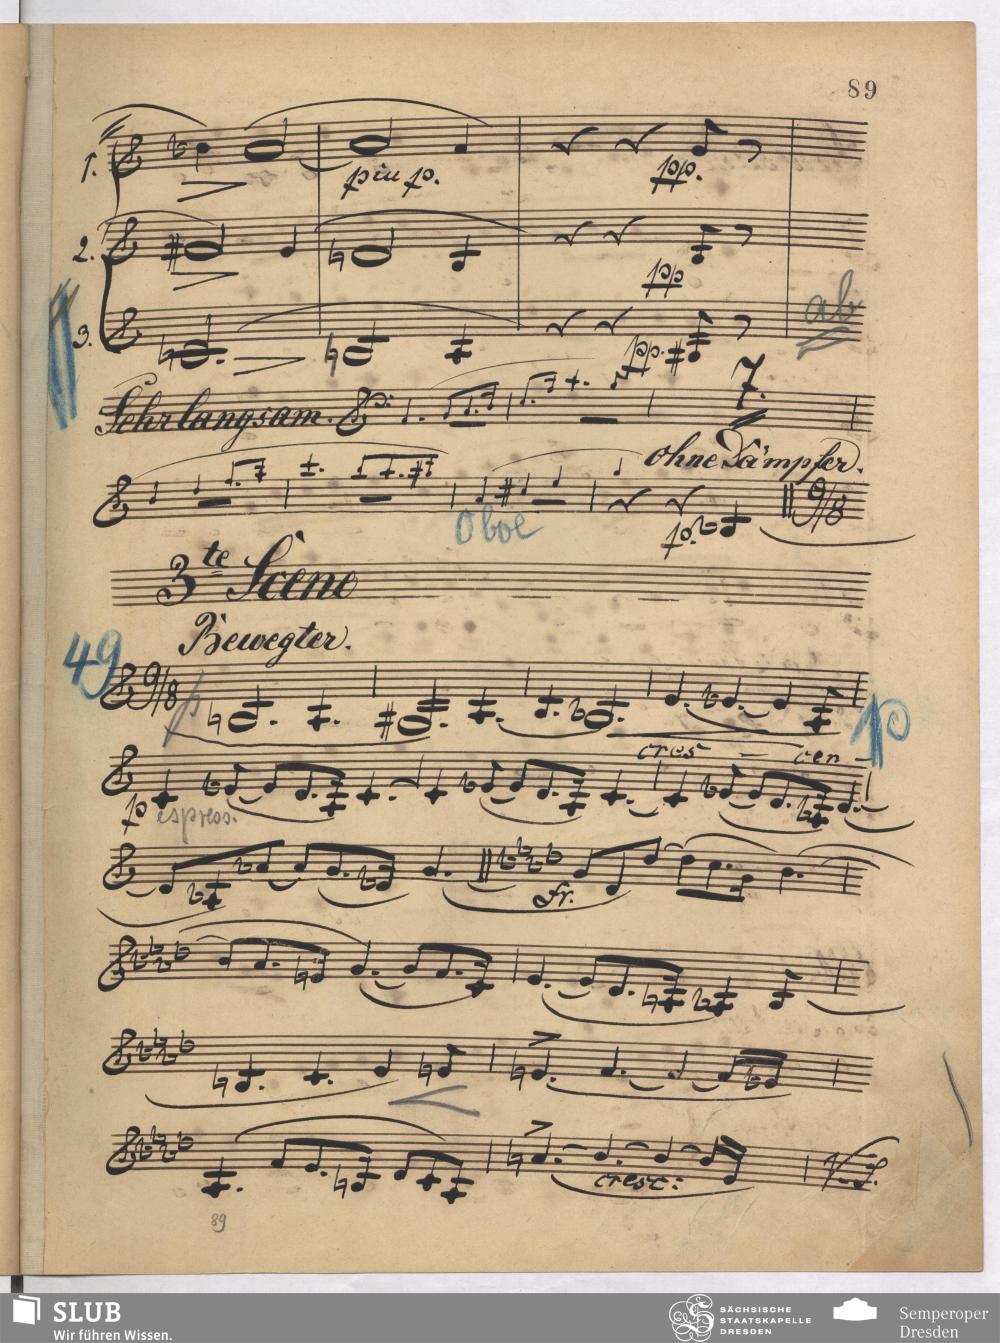 89
1.
piu p.
pp.
2.
pp
3.
pp.
ab
Sehr langsam.
7.
ohne Dämpfer.
Oboe
p.
9/8
3te Scene
Bewegter.
49
9/8
p
cres - cen -
p
p espress.
Fr.
cresc:
V.S.
89
SLUB
Wir führen Wissen.
SÄCHSISCHE
STAATSKAPELLE
DRESDEN
Semperoper
Dresden